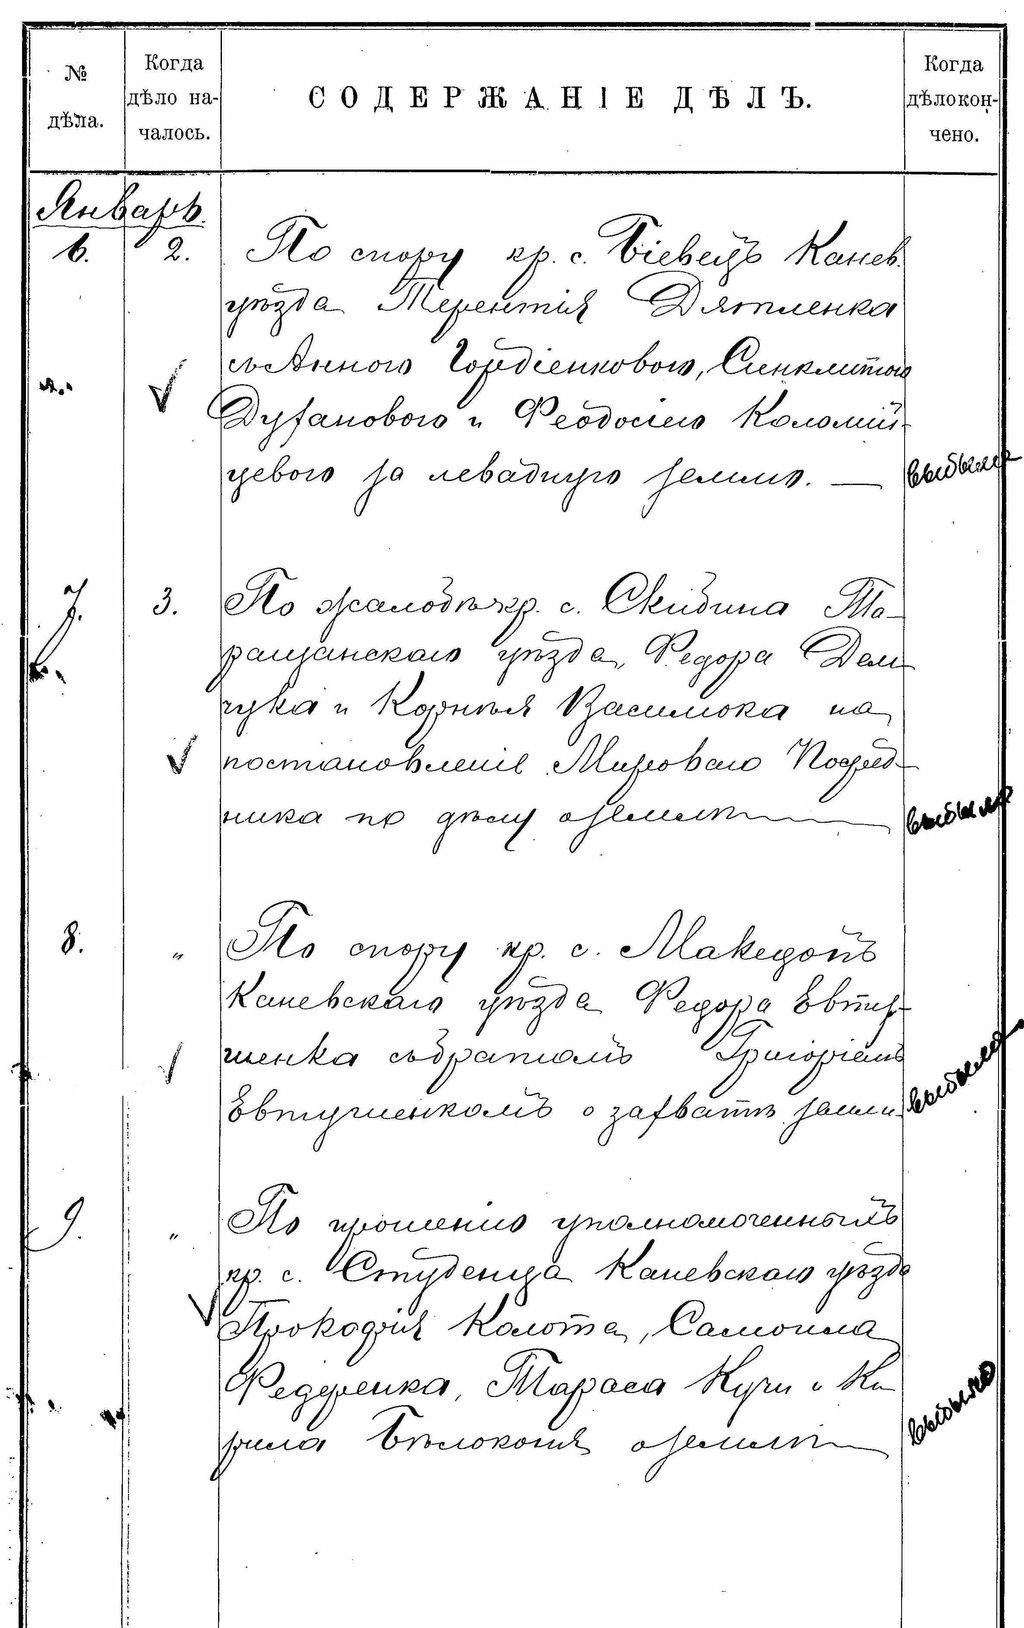 № дѣла.
Когда дѣло на-чалось.
СОДЕРЖАНІЕ ДѢЛЪ.
Когда дѣло кон-чено.
Январь.
6. 2. По спору кр. с. Біевецъ Канев.
уѣзда Терентія Дятленка
съ Анною Гордіенковою, Синклитою
Духановою и Феодосіею Коломій-
цевою за левадную землю. —
выбыло
7. 3. По жалобѣ кр. с. Скибина Та-
ращанскаго уѣзда, Федора Дем-
чука и Корнѣя Василюка на
постановленіе Мироваго Посред-
ника по дѣлу о землѣ
выбыло
8. " По спору кр. с. Македонъ
Каневскаго уѣзда Федора Евту-
шенка съ братомъ Григоріемъ
Евтушенкомъ о захватѣ земли
выбыло
9. " По прошенію уполномоченныхъ
кр. с. Студенца Каневскаго уѣзда
Прокофія Колота, Самоила
Федоренка, Тараса Кучи и Ки-
рила Бѣлоконя о землѣ
выбыло